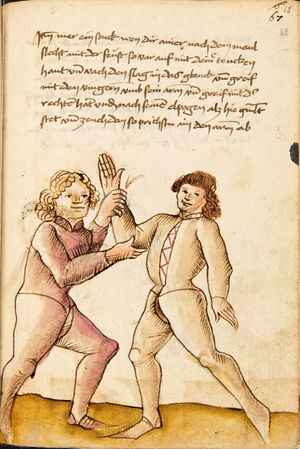 67
Item mer ein stuck wen dir ainer nach dem maul
slecht mit der feust so var auf mit dem tencken
haut und vach den slag in das glenck und greif
mit den vingern umb sein arm und greif mit der
rechten hant nach seine elpogen als hie gemlt
stet und zeuch den so prichstu im den arm ab